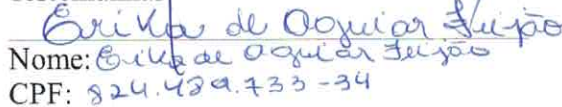 Erika de Aguiar Feijão
Nome: Erika de Aguiar Feijão
CPF: 824.489.733-34